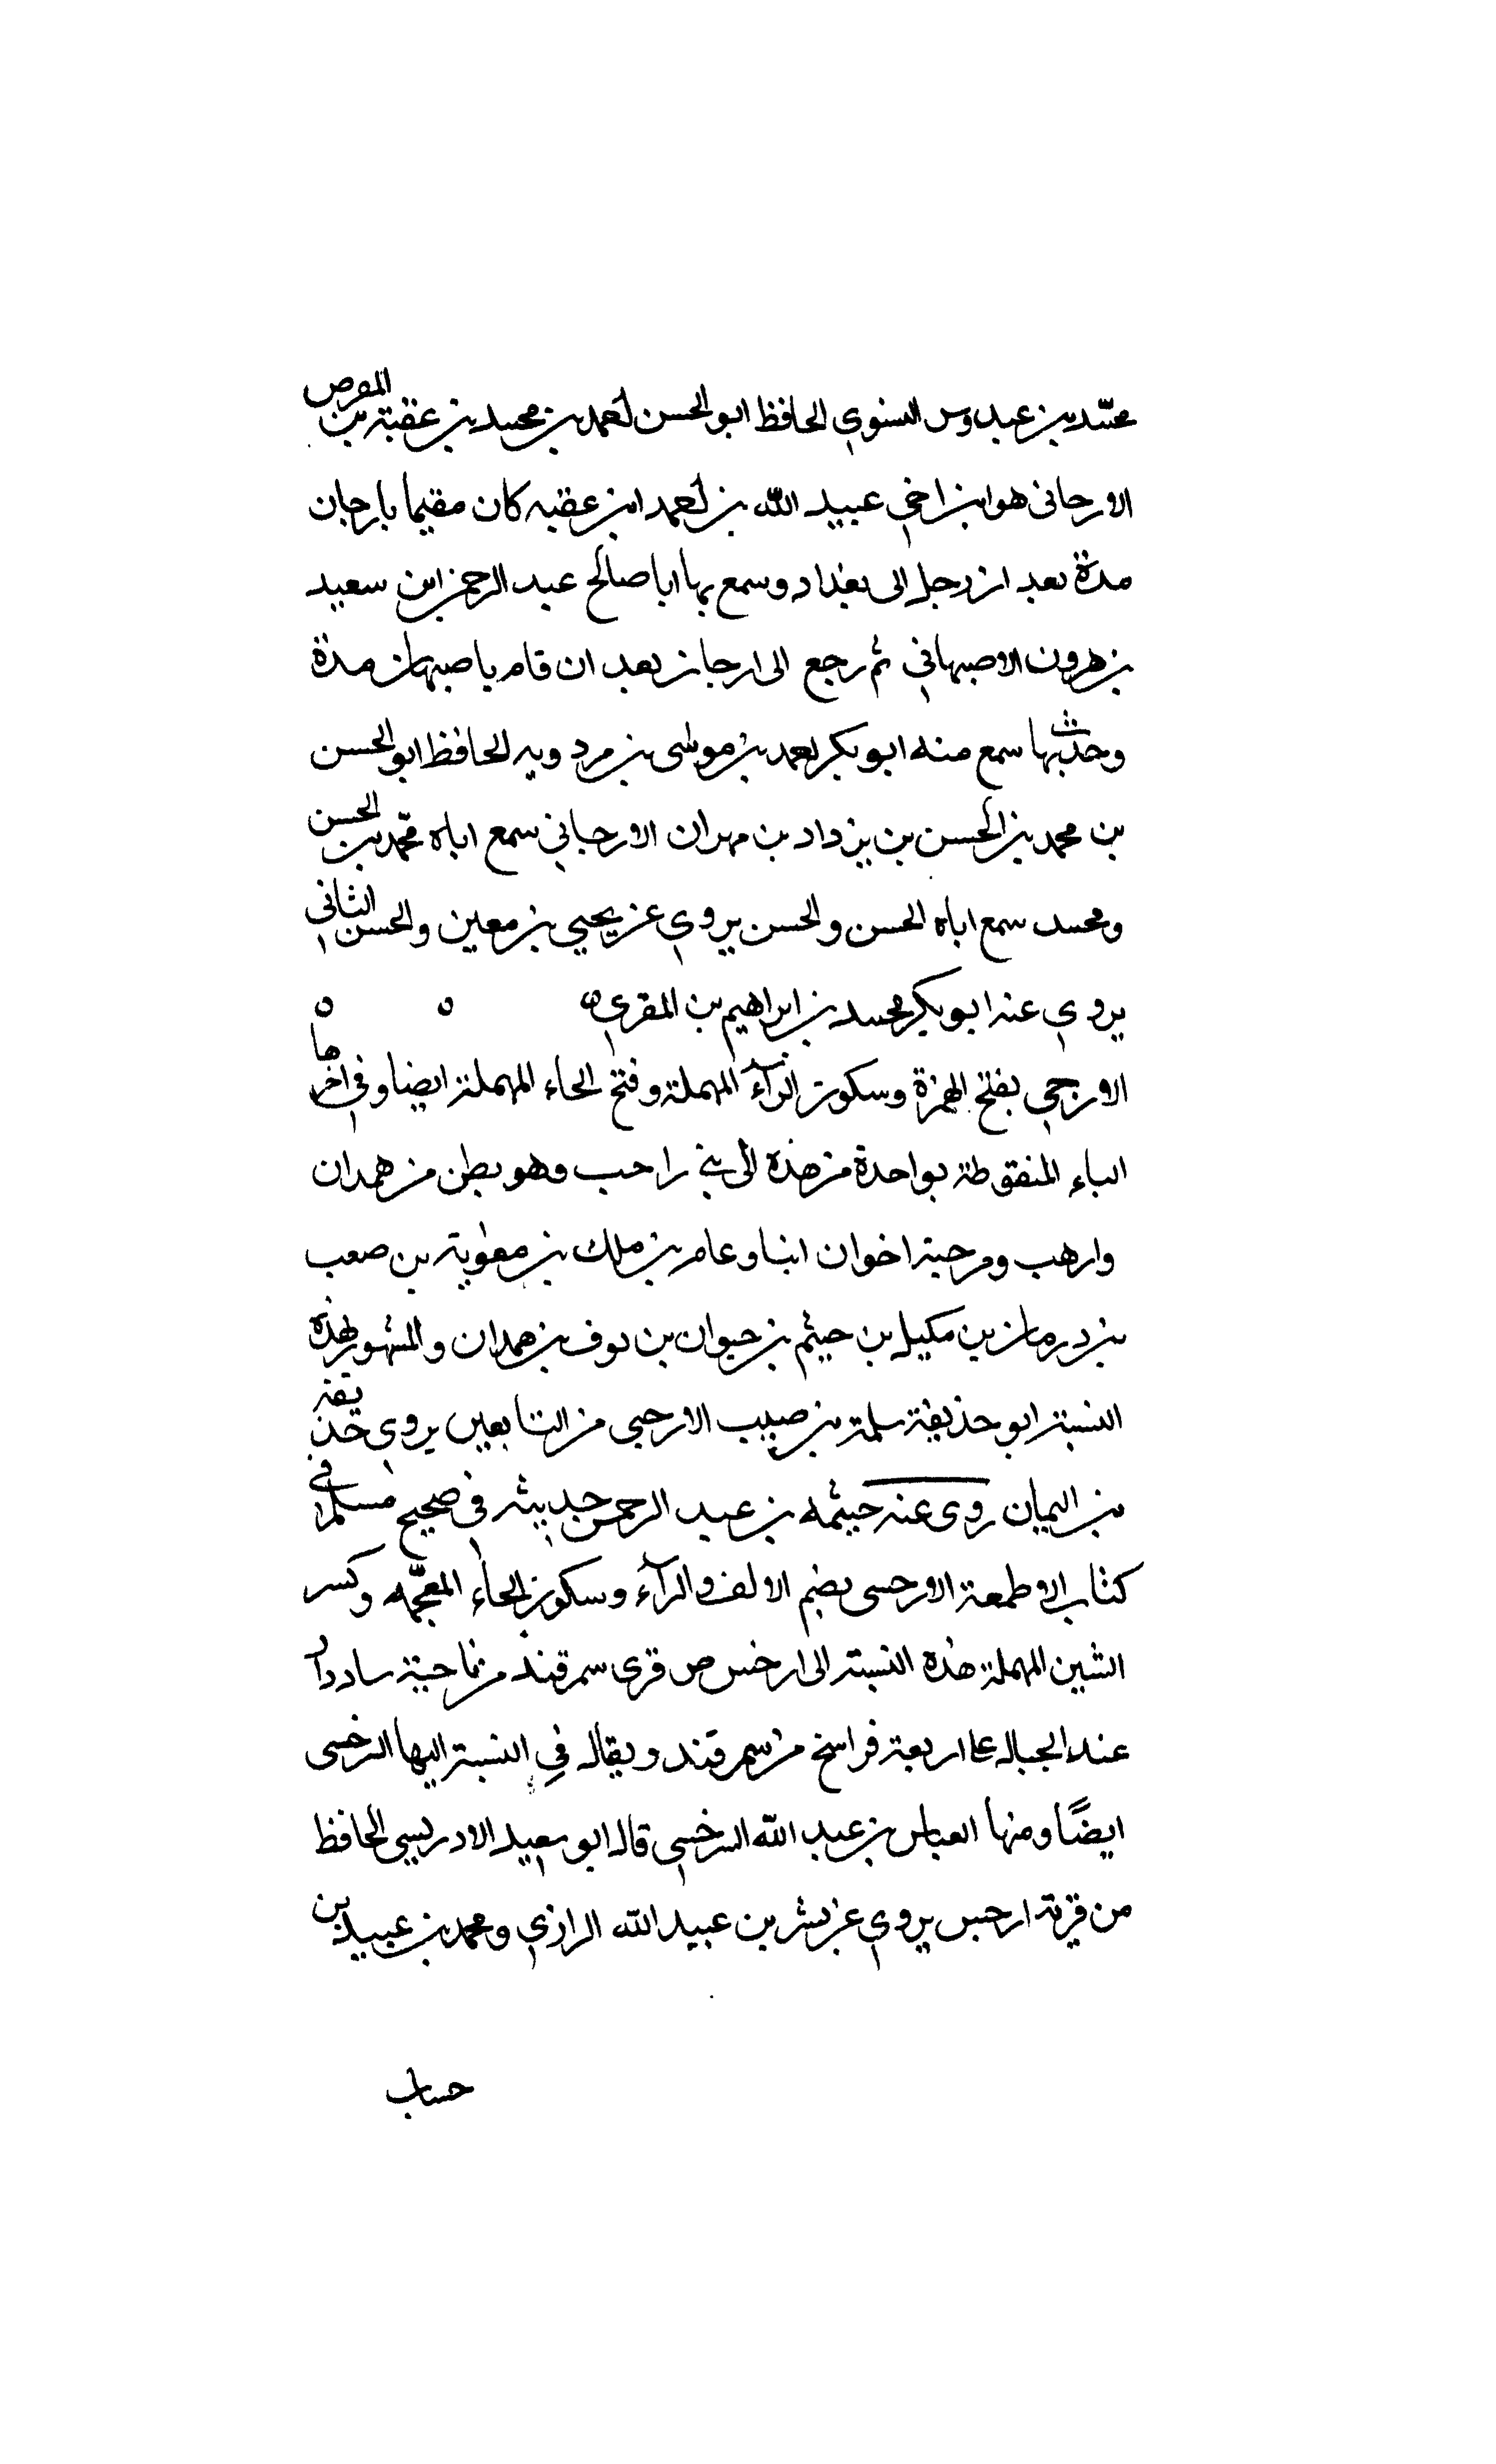 محمد بن عبدوس النسوي الحافظ ابو الحسن احمد بن محمد بن عقبة بن المفرض
الارجاني هو ابن اخي عبيد الله بن احمد ابن عقبه كان مقيما بارجان
مدة بعد ان رحل الى بغداد وسمع بها ابا صالح عبد الرحمن ابن سعيد
بن هرون الاصبهاني ثم رجع الى ارجان بعد ان قام باصبهان مدة
وحدث بها سمع منه ابو بكر احمد بن موسى بن مردويه الحافظ ابو الحسن
بن محمد بن الحسن بن يزداد بن مهران الارجاني سمع اباه محمد بن الحسن
ومحمد سمع اباه الحسن والحسن يروي عن يحيي بن معين والحسن الثاني
يروي عنه ابو بكر محمد بن ابراهيم بن المقري
الارحبي بفتح الهمزة وسكون الرآء المهملة وفتح الحاء المهملة ايضا وفي اخرها
الباء المنقوطة بواحدة من هذه الى بني راحب وهو بطن من همدان
وارهب ومرحبة اخوان ابنا وعامر بن ملك بن معوية بن صعب
بن درمان بن مكيل بن حيثم بن حيوان بن نوف بن همدان والمشهور بهذه
النسبة ابو حذيفة سلمة بن صبيب الارحبي من التابعين يروي حذيفة
بن اليمان روى عنه حيثمه بن عبد الرحمن حديثه في صحيح مسلم في
كتاب الاطمعة الارحسى بضم الالف والرآء وسكون الحاء المعجمه وكسر
الشين المهملة هذه النسبة الى ارخس من قرى سمرقند من ناحية ساددار
عند الجبال على اربعة فراسخ من سمرقند ويقال في النسبة اليها الرخسى
ايضًا ومنها العباس بن عبد الله الرخسي قال ابو سعيد الادريسي الحافظ
من قرية ارحس يروي عن بشر بن عبيد الله الرازي ومحمد بن عبيد بن
حساب